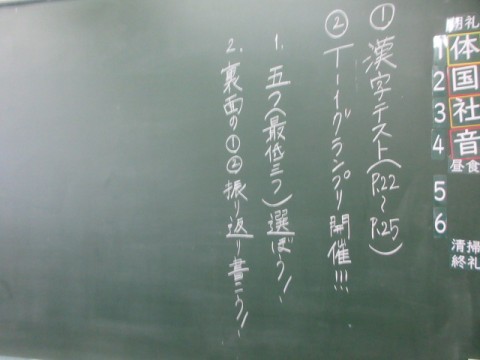 ① 漢字テスト(P.22〜P.25)
② T-1グランプリ開催!!!
1. 五つ(最低三つ)選ぼう!
2. 裏面の①②振り返り書こう!
朝礼
1 体
2 国
3 社
4 音
昼食
5
6
清掃
終礼